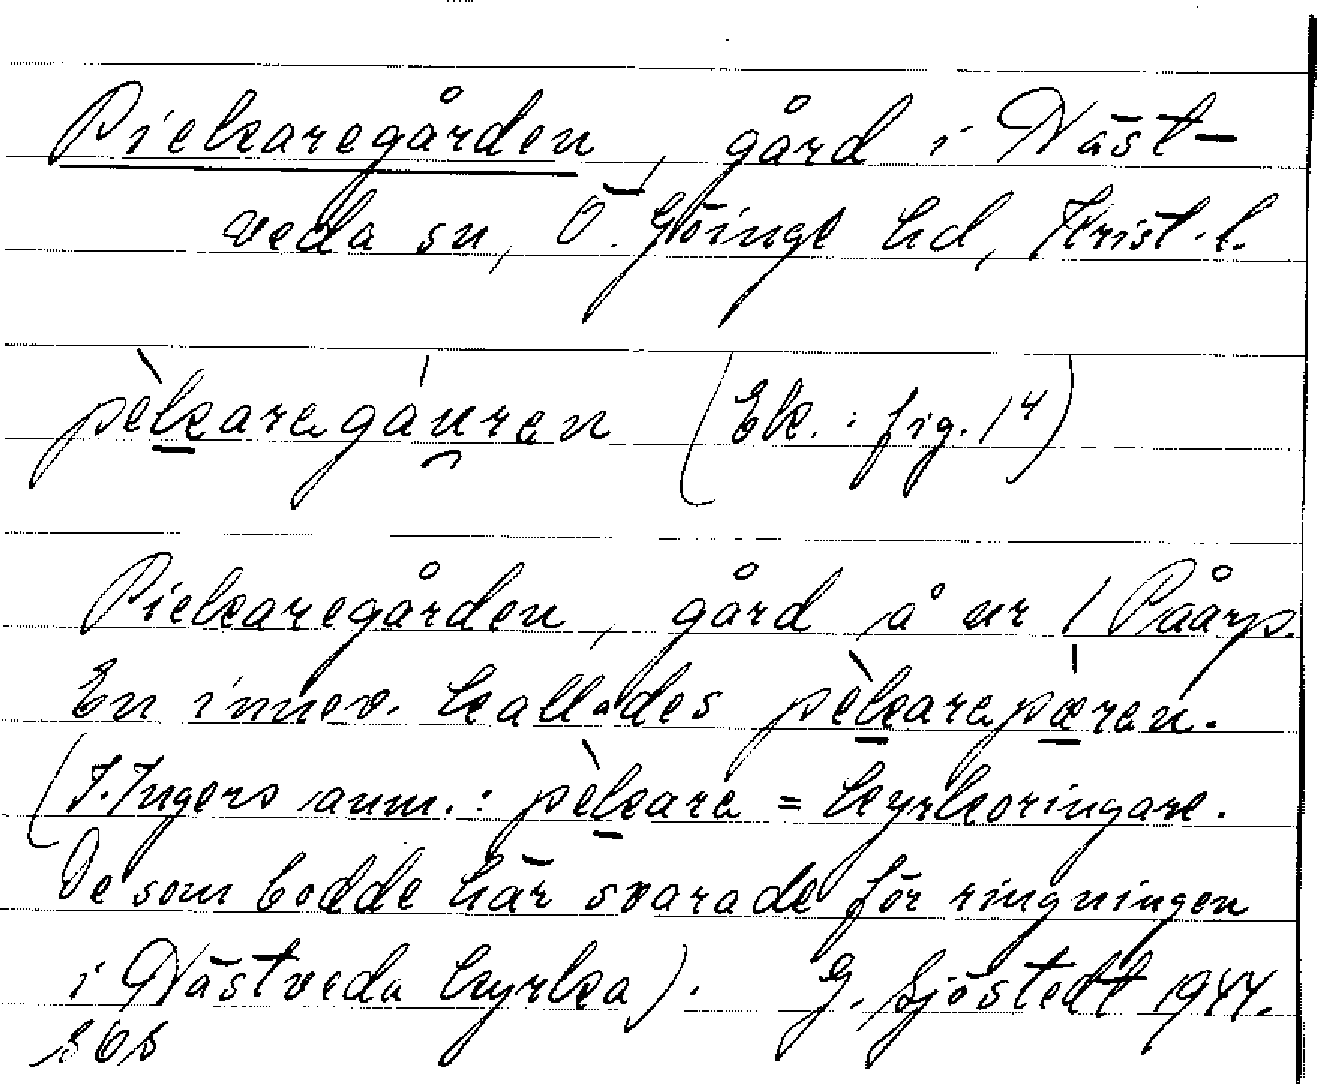 Piekaregården, gård i Näst-
veda sn, Ö. Göinge hd, Krist. l.
pèkaregáuren (Ek. : fig. 14)
Piekaregården, gård å nr 1 Påarp.
En innev. kallades pèkarepæren.
(I. Ingers anm. : pèkare = kyrkoringare.
De som bodde här svarade för ringningen
i Nästveda kyrka). G. Sjöstedt 1944.